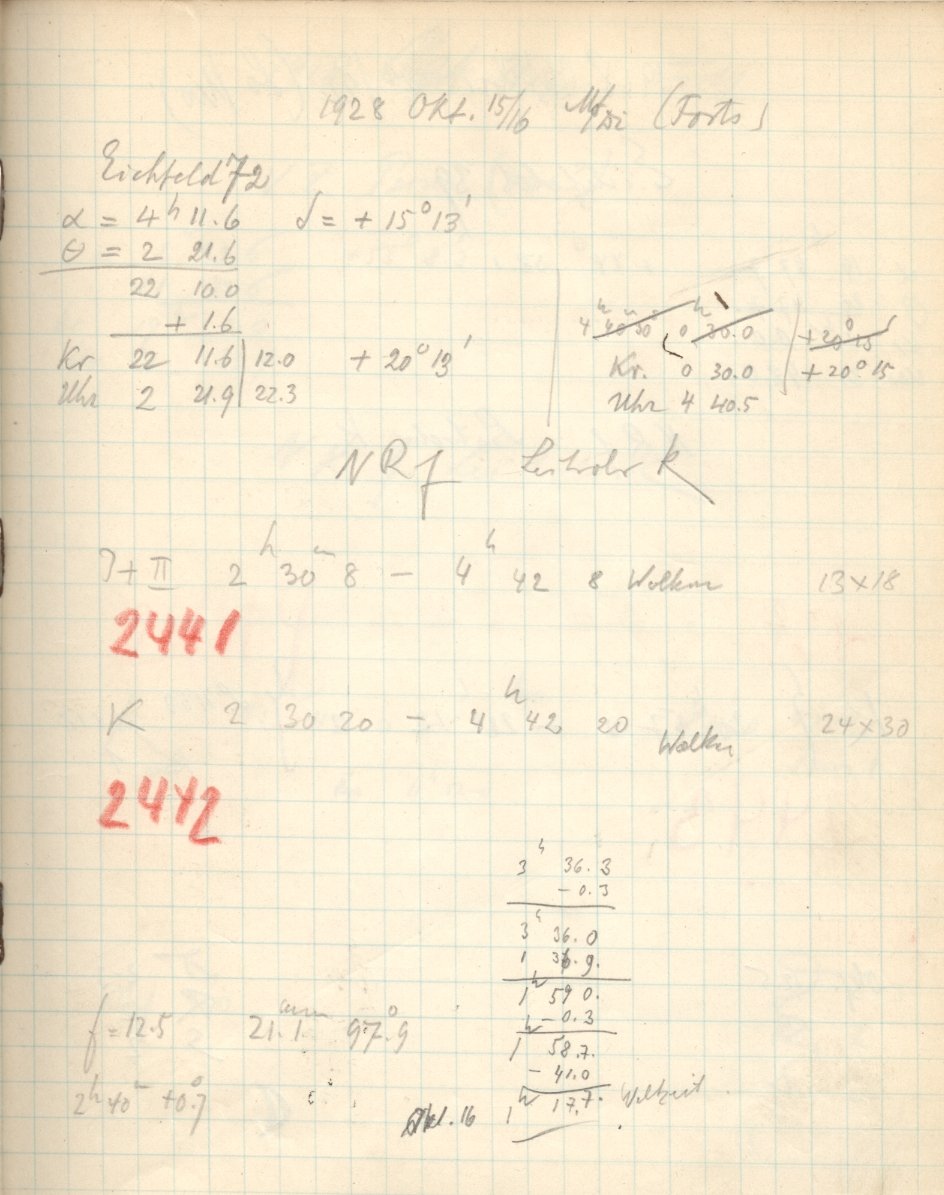 1928 Okt. 15/16 Mo/Di (Forts)
Eichfeld 72
α = 4h 11.6 δ = + 15° 13'
θ = 2 21.6
22 10.0
+ 1.6
Kr 22 11.6 | 12.0 + 20° 13'
Uhr 2 21.9 | 22.3
4h 40m 30s 0h 30.0 + 20° 15'
Kr. 0 30.0 + 20° 15
Uhr 4 40.5
NRf Leitrohr K
I + II 2h 30m 8 – 4h 42 8 Wolken 13×18
2441
K 2 30 20 – 4h 42 20 Wolken 24×30
2442
3h 36.3
– 0.3
3h 36.0
1 36.9.
1h 59 0.
– 0.3
1h 58.7.
– 41.0
Okt. 16 1h 17.7. Weltzeit
f = 12.5 21.1 97.9
2h 40m +0.7